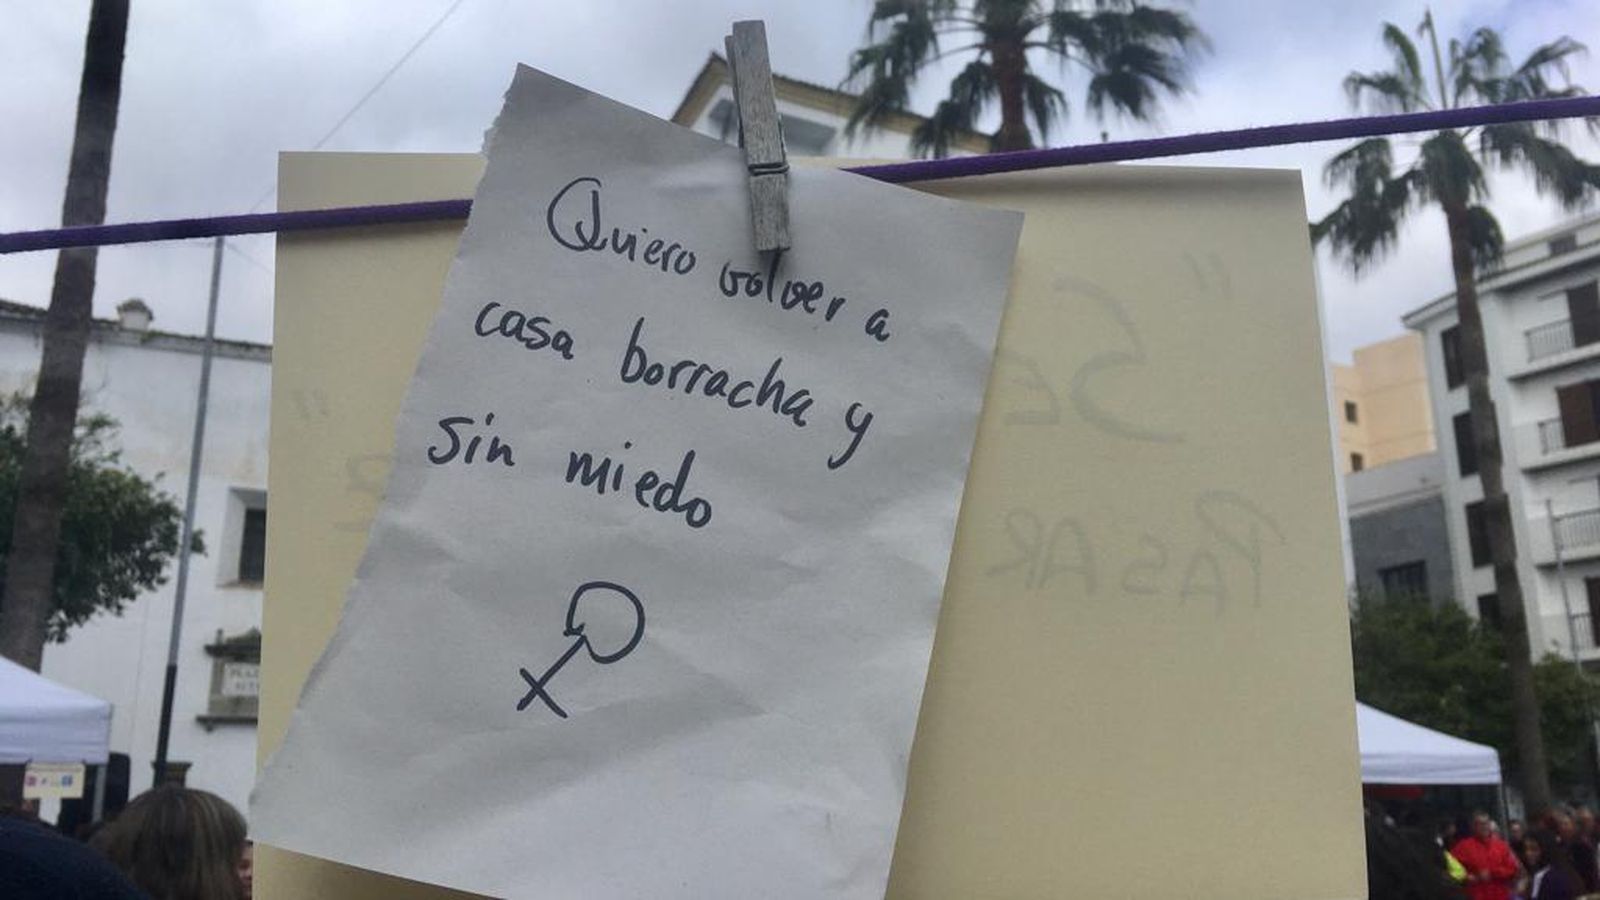 Quiero volver a
casa borracha y
sin miedo
" SE
PASAR